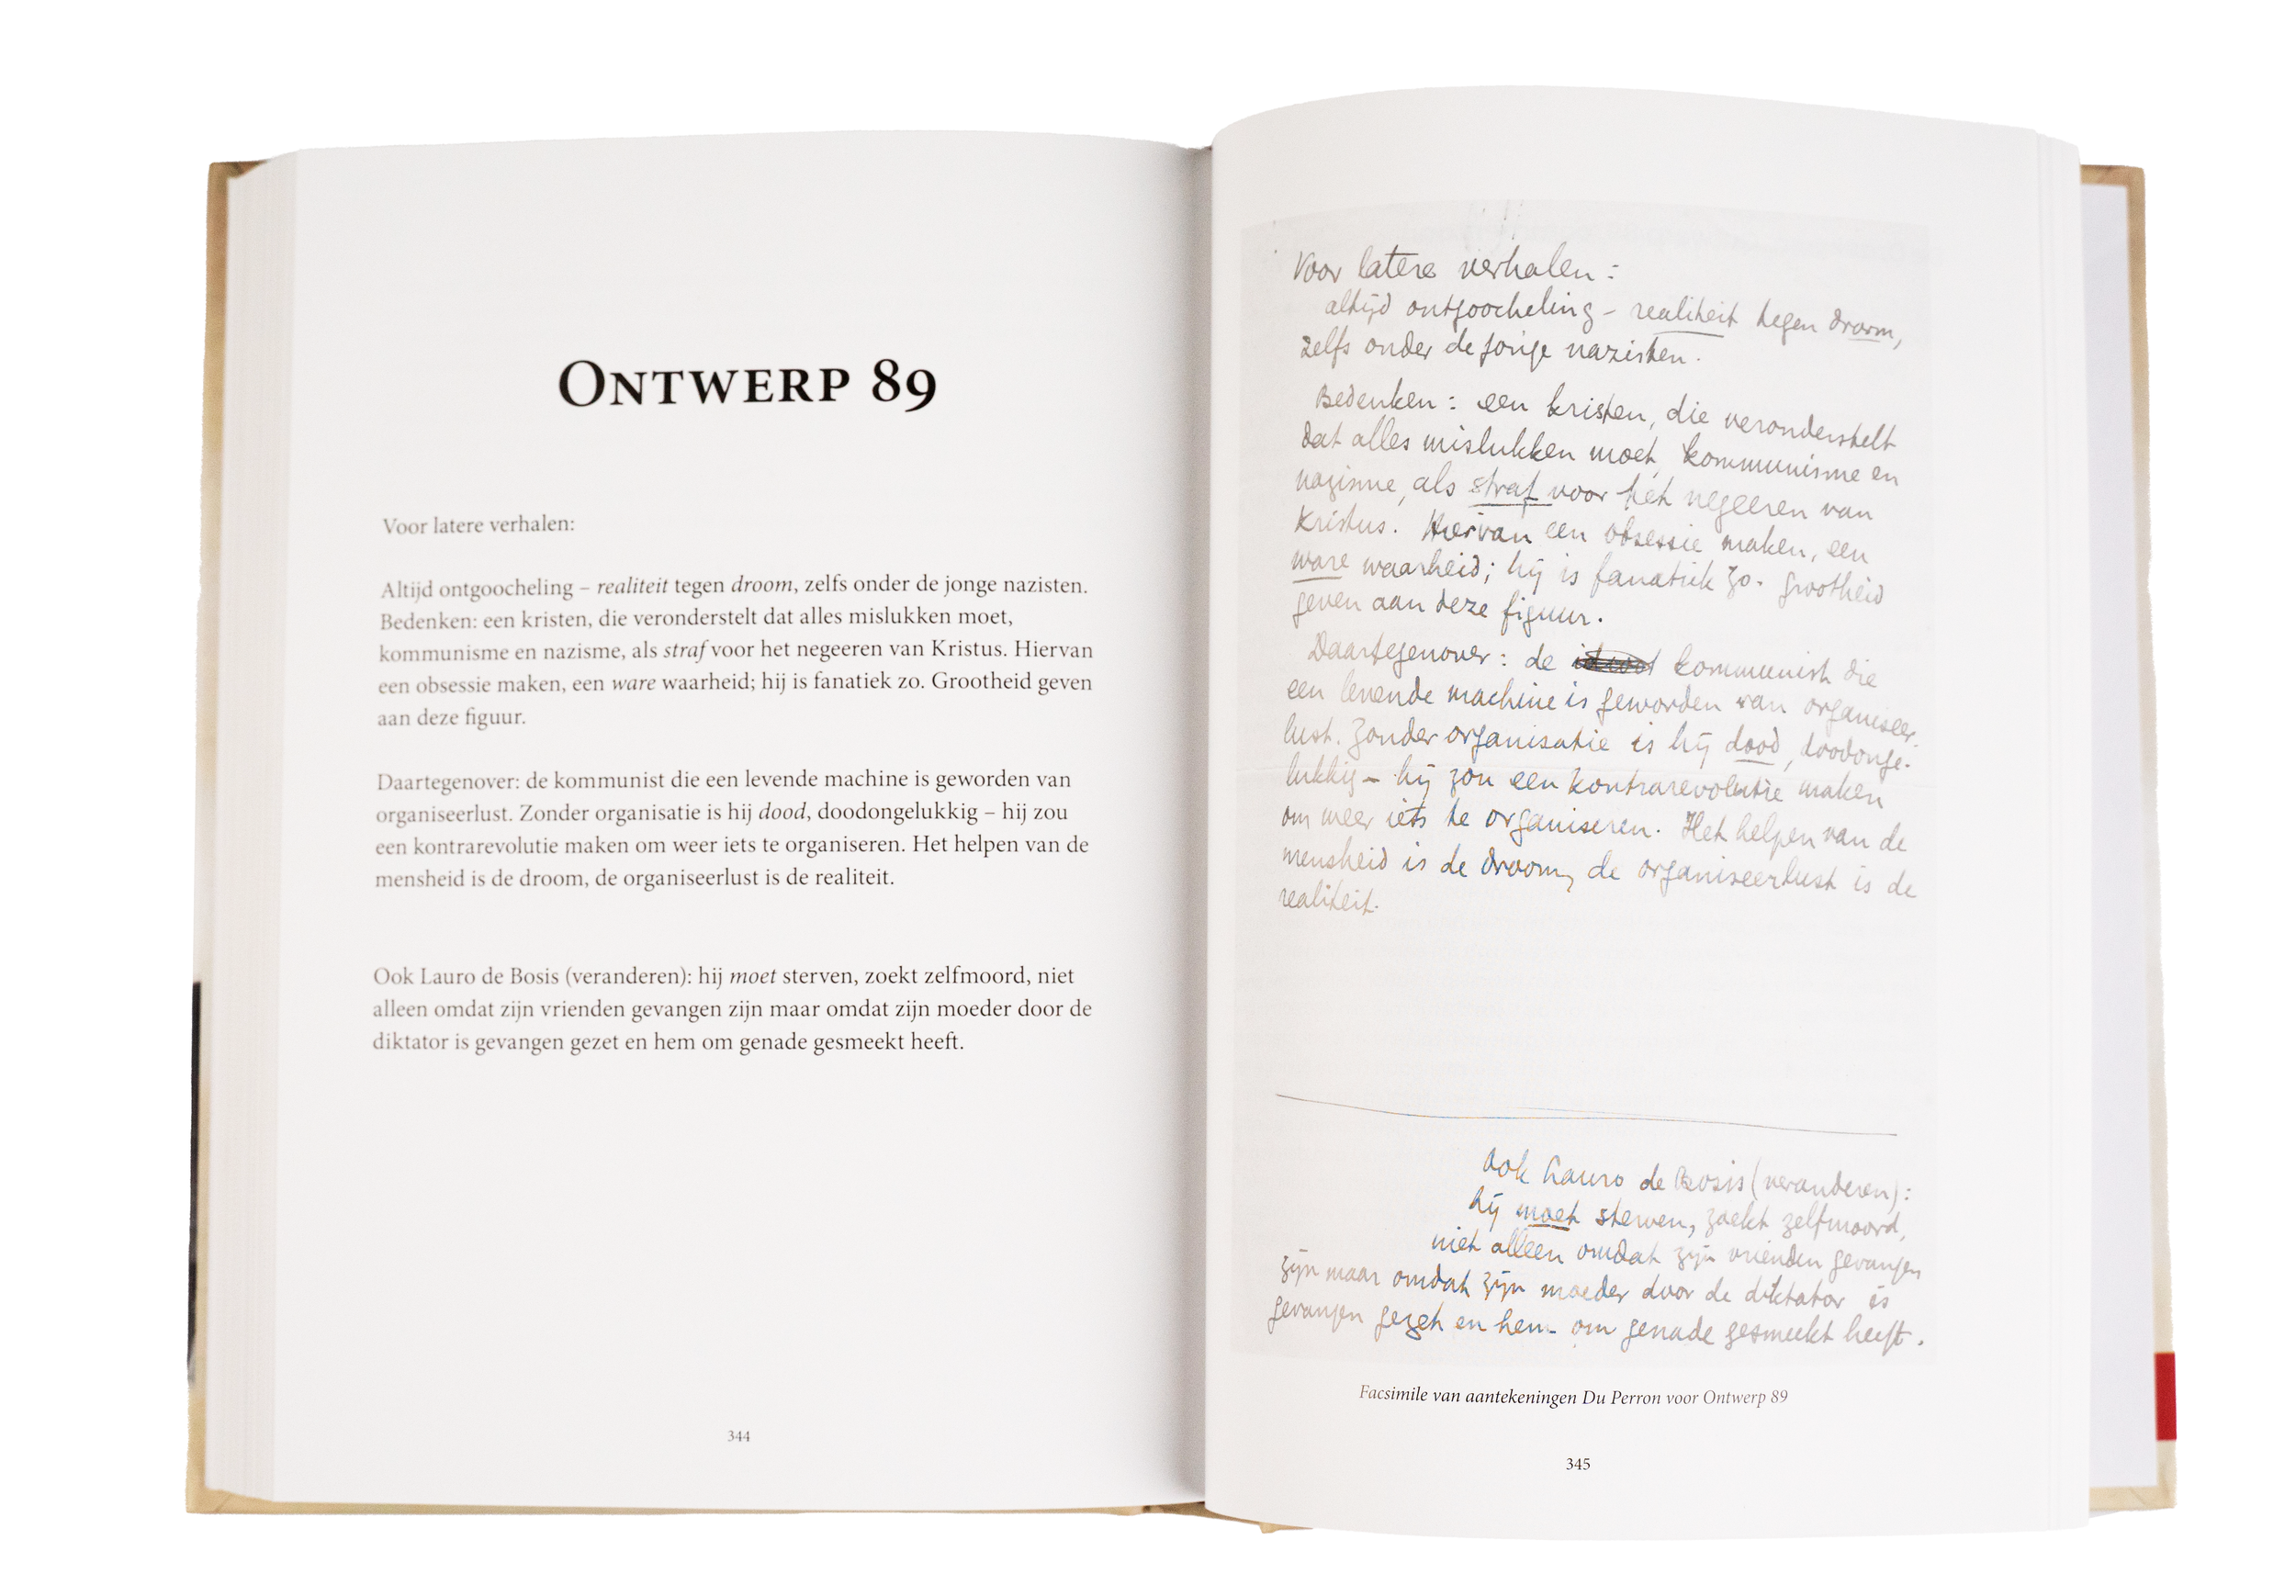 Ontwerp 89
Voor latere verhalen:
Altijd ontgoocheling – realiteit tegen droom, zelfs onder de jonge nazisten.
Bedenken: een kristen, die veronderstelt dat alles mislukken moet,
kommunisme en nazisme, als straf voor het negeeren van Kristus. Hiervan
een obsessie maken, een ware waarheid; hij is fanatiek zo. Grootheid geven
aan deze figuur.
Daartegenover: de kommunist die een levende machine is geworden van
organiseerlust. Zonder organisatie is hij dood, doodongelukkig – hij zou
een kontrarevolutie maken om weer iets te organiseren. Het helpen van de
mensheid is de droom, de organiseerlust is de realiteit.
Ook Lauro de Bosis (veranderen): hij moet sterven, zoekt zelfmoord, niet
alleen omdat zijn vrienden gevangen zijn maar omdat zijn moeder door de
diktator is gevangen gezet en hem om genade gesmeekt heeft.
344
Voor latere verhalen:
altijd ontgoocheling – realiteit tegen droom,
zelfs onder de jonge nazisten.
Bedenken: een kristen, die veronderstelt
dat alles mislukken moet, kommunisme en
nazisme, als straf voor het negeeren van
Kristus. Hiervan een obsessie maken, een
ware waarheid; hij is fanatiek zo. Grootheid
geven aan deze figuur.
Daartegenover: de kommunist die
een levende machine is geworden van organiseer-
lust. Zonder organisatie is hij dood, doodonge-
lukkig – hij zou een kontrarevolutie maken
om weer iets te organiseren. Het helpen van de
mensheid is de droom, de organiseerlust is de
realiteit.
Ook Lauro de Bosis (veranderen):
hij moet sterven, zoekt zelfmoord,
niet alleen omdat zijn vrienden gevangen
zijn maar omdat zijn moeder door de diktator is
gevangen gezet en hem om genade gesmeekt heeft.
Facsimile van aantekeningen Du Perron voor Ontwerp 89
345